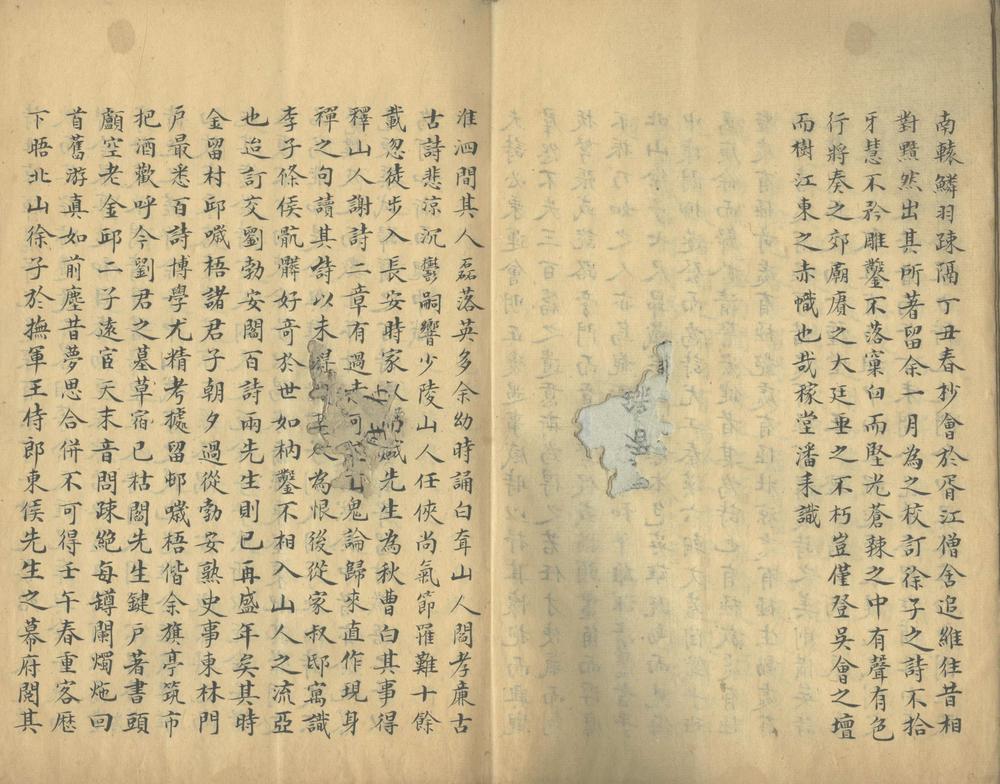 南轅鱗羽疎隔丁丑春杪會於胥江僧舍追維往昔相
對黯然出其所著留余一月為之校訂徐子之詩不拾
牙慧不矜雕鑿不落窠臼而堅光蒼辣之中有聲有色
行將奏之郊廟賡之大廷垂之不朽豈僅登吳會之壇
而樹江東之赤幟也哉稼堂潘耒識
淮泗間其人磊落英多余幼時誦白耷山人閻孝廉古
古詩悲涼沉鬱嗣響少陵山人任俠尚氣節罹難十餘
載忽徒步入長安時家以先生為秋曹白其事得
釋山人謝詩二章有過去可鬼論歸來直作現身
禪之句讀其詩以未得為恨後從家叔邸寓識
李子條侯骯髒好奇於世如枘鑿不相入山人之流亞
也迨訂交劉勃安閻百詩兩先生則已再盛年矣其時
金留村邱嘰梧諸君子朝夕過從勃安熟史事東林門
戶最悉百詩博學尤精考據留邨嘰梧偕余旗亭筑市
把酒歡呼今劉君之墓草宿已枯閻先生鍵戶著書頭
顱空老金邱二子遠宦天末音問疎絕每罇闌燭灺回
首舊游真如前塵昔夢思合併不可得壬午春重客歷
下晤北山徐子於撫軍王侍郎東侯先生之幕府閱其